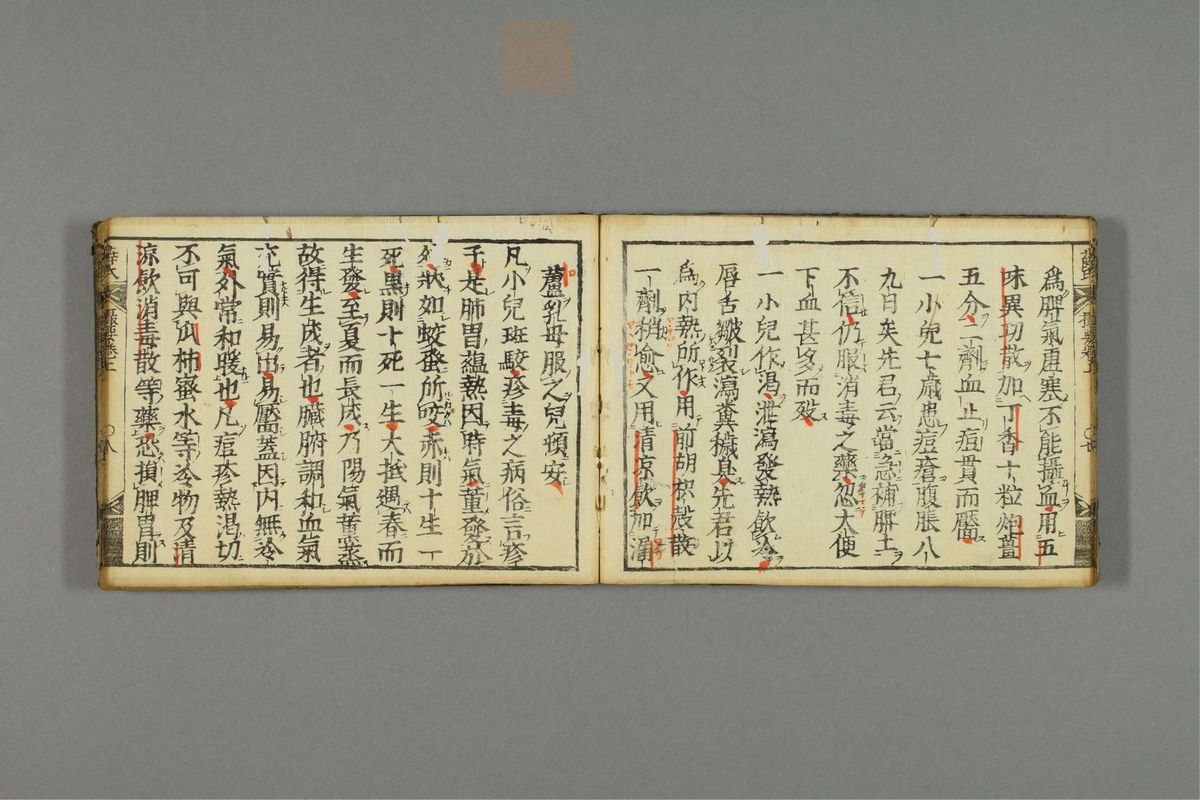 為脾氣虛塞不能攝血用五
味異功散加丁香十粒炮薑
五分二劑血止痘貫而靨
一小兒七歲患痘瘡腹脹八
九日矣先君云當急補脾土
不信仍服消毒之藥忽大便
下血甚多而歿
一小兒作渴泄瀉發熱飲冷
唇舌皺裂瀉糞穢臭先君以
為内熱所作用前胡枳殼散
一劑稍愈又用清涼飲加漏
蘆乳母服之兒頓安
凡小兒斑駁疹毒之病俗言疹
子是肺胃蘊熱因時氣董發於
外狀如蚊蚤所咬赤則十生一
死黒則十死一生大抵遇春而
生發至夏而長成乃陽氣薰蒸
故得生成者也臟腑調和血氣
充實則易出易靨蓋因内無冷
氣外常和暖也凡痘疹熱渴切
不可與瓜柿蜜水等冷物及清
涼飲消毒散等藥恐損脾胃則